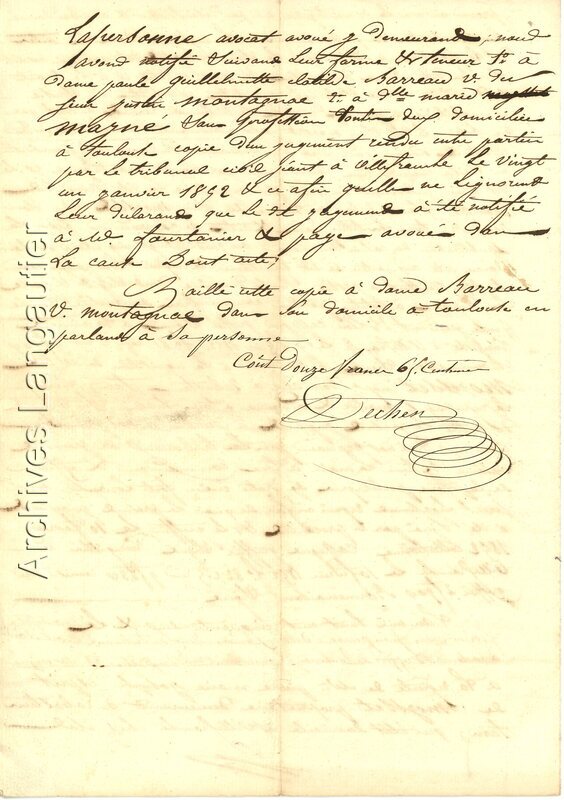 Lapersonne avocat avoué y demeurant, nous
avons notifié suivant leur forme & teneur 1º à
Dame paule Guillelmette clotilde Barreau Ve du
sieur justin montagnac 2º à dlle marie
mazné sans profession toutes deux domiciliées
à toulouse copie d'un jugement rendu entre parties
par le tribunal civil séant à villefranche le vingt
un janvier 1852 & ce afin qu'elles ne l'ignorent
leur déclarant que le dt jugement à été notifié
à Me fourtanier & page avoué dans
la cause Dont acte,
Baillé cette copie à dame Barreau
Ve montagnac dans son domicile à toulouse en
parlant à sa personne
Coût Douze francs 65 Centimes
Dechen
Archives Langautier